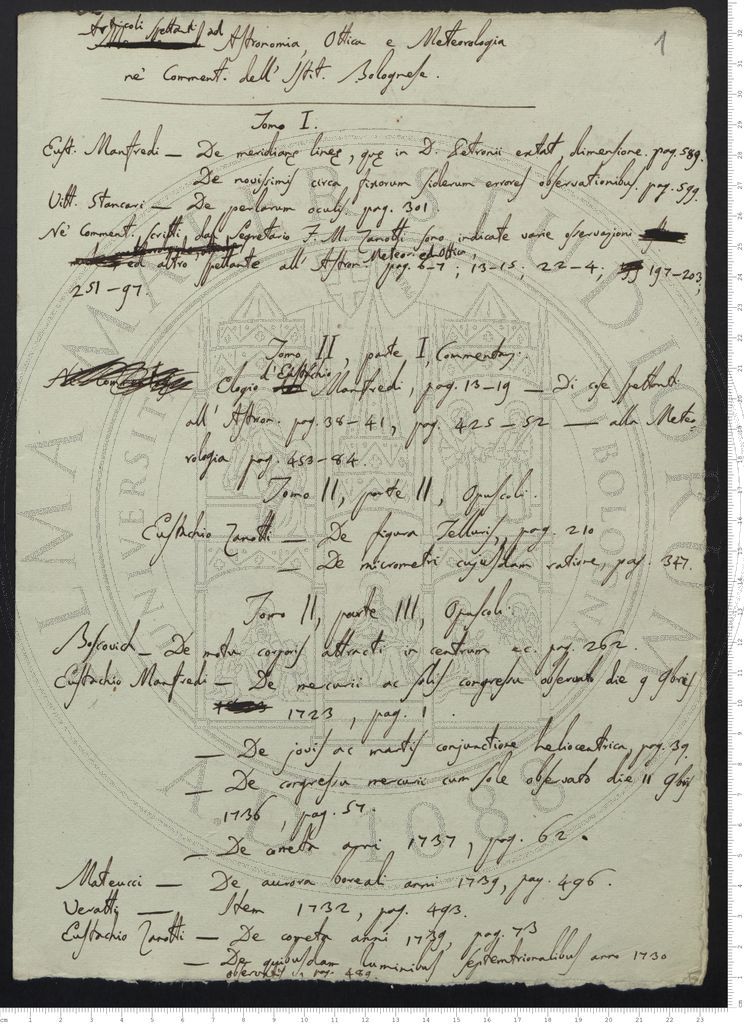 Articoli spettanti ad Astronomia, Ottica e Meteorologia
1
ne' Comment. dell' Istit. Bolognese.
Tomo I.
Eust. Manfredi — De meridianę lineę, quę in D. Petronii extat, dimensione. pag. 589.
De novissimis circa fixorum siderum errores observationibus. pag. 599
Vitt. Stancari — De perlarum oculis. pag. 301.
Ne' Comment. scritti dal Segretario F. M. Zanotti sono indicate varie osservazioni
ed altro spettante all' Astron. Meteor. ed Ottica, pag. 6-7; 13-15; 22-4; 197-203;
251-97.
Tomo II, parte I, Commentarj.
Elogio d'Eustachio Manfredi, pag. 13-19 — Di cose spettanti
all' Astron. pag. 38-41, pag. 425-52 — alla Meteo-
rologia pag. 453-84.
Tomo II, parte II, Opuscoli.
Eustachio Zanotti — De figura Telluris, pag. 210
— De micrometri cujusdam ratione, pag. 347.
Tomo II, parte III, Opuscoli.
Boscovich — De motu corporis attracti in centrum ec. pag. 262.
Eustachio Manfredi — De mercurii ac solis congressu observato die 9 9bris
1723, pag. 1.
— De jovis ac martis conjunctione heliocentrica, pag. 39.
— De congressu mercurii cum sole observato die 11 9bris
1736, pag. 57.
— De cometa anni 1737, pag. 62.
Mateucci — De aurora boreali anni 1739, pag. 496.
Veratti — Item 1732, pag. 493.
Eustachio Zanotti — De cometa anni 1739, pag. 73
— De quibusdam luminibus septemtrionalibus anno 1730
observatis pag. 489.
ALMA MATER STUDIORUM
UNIVERSITÀ DI BOLOGNA
A.D. 1088